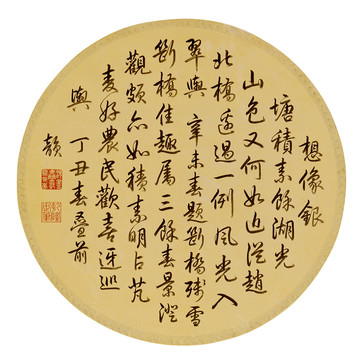 想像銀
塘積素餘湖光
山色又何如近從趙
北橋邊過一例風光入
翠輿 辛未春題斷橋殘雪
斷橋佳趣屬三餘春景澄
觀頗亦如積素明占芃
麥好農民歡喜迓巡
輿 丁丑春疊前
韻